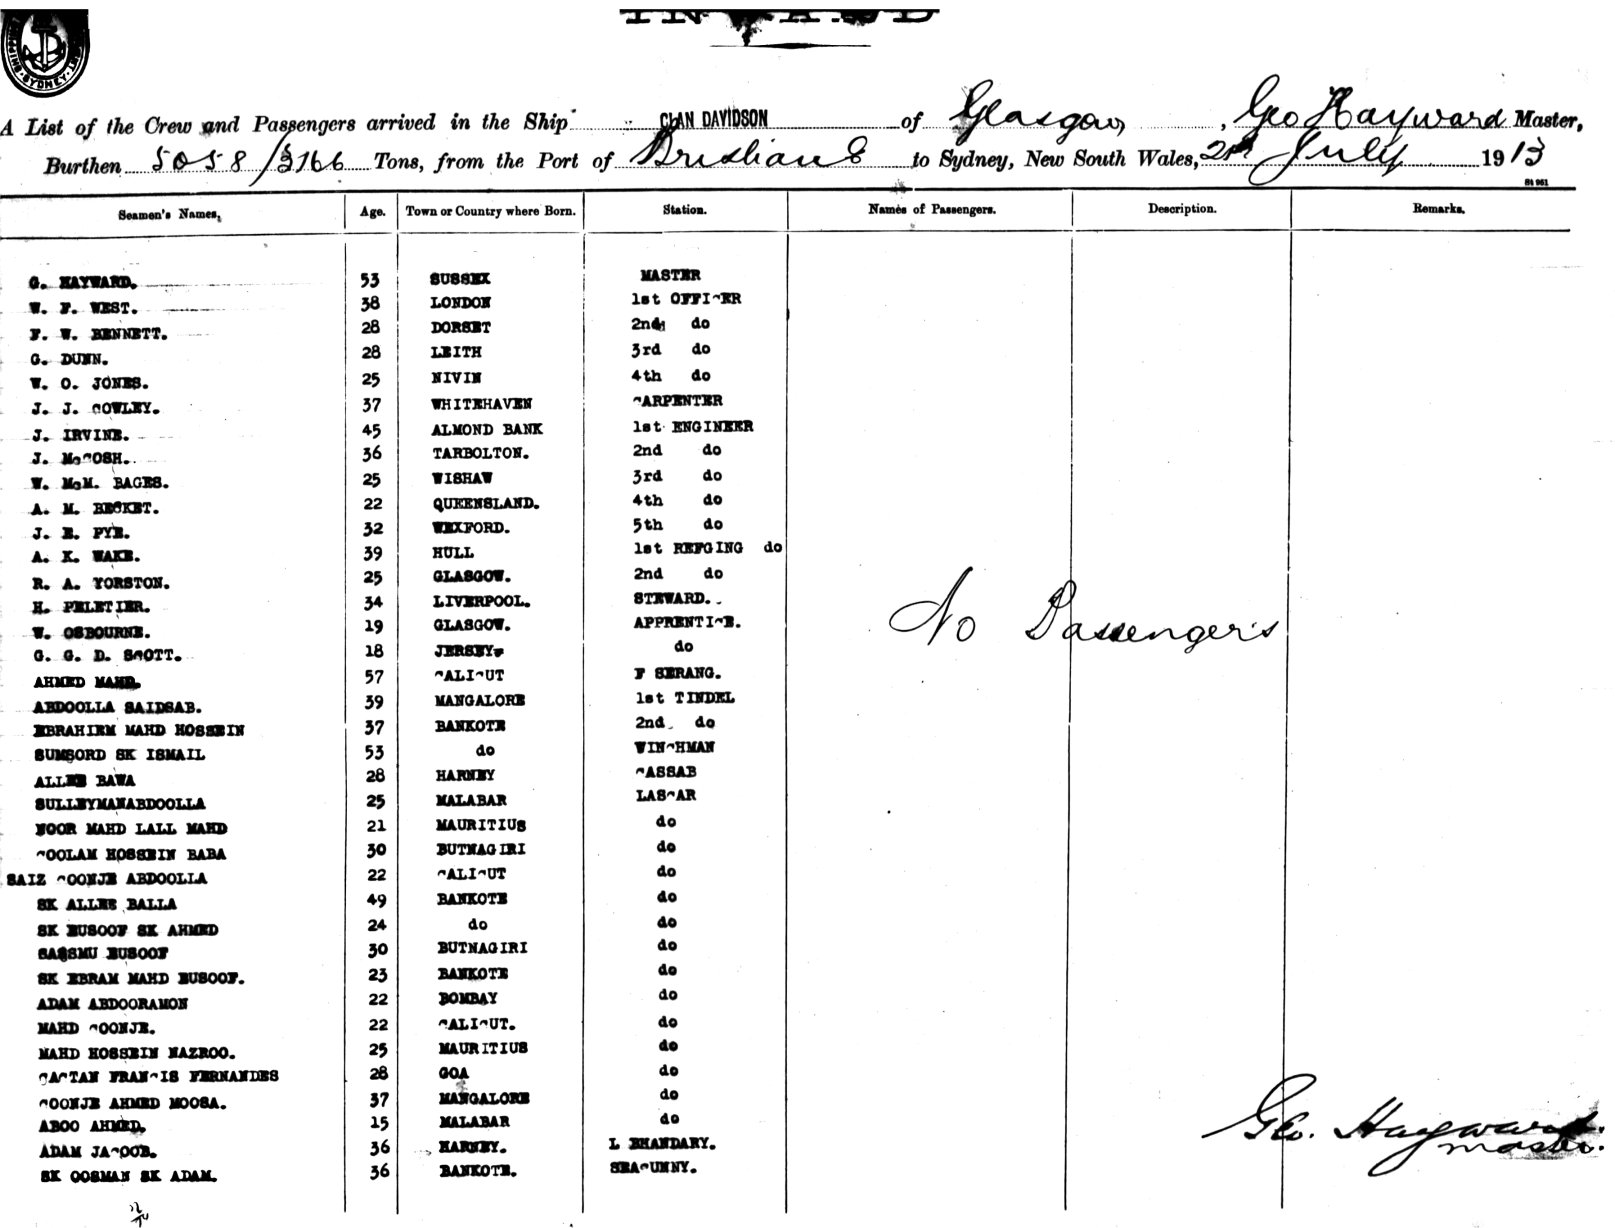 SHIPPING · SYDNEY
INWARD
A List of the Crew and Passengers arrived in the Ship CLAN DAVIDSON of Glasgow, Geo Hayward Master,
Burthen 5058/3166 Tons, from the Port of Brisbane to Sydney, New South Wales, July 1913
St 961
Seamen's Names, Age. Town or Country where Born. Station. Names of Passengers. Description. Remarks.
G. HAYWARD. 53 SUSSEX MASTER
W. F. WEST. 38 LONDON 1st OFFICER
F. W. BENNETT. 28 DORSET 2nd do
G. DUNN. 28 LEITH 3rd do
W. O. JONES. 25 NIVIN 4th do
J. J. COWLEY. 37 WHITEHAVEN CARPENTER
J. IRVINE. 45 ALMOND BANK 1st ENGINEER
J. McCOSH. 36 TARBOLTON. 2nd do
W. McM. BAGES. 25 WISHAW 3rd do
A. M. BECKET. 22 QUEENSLAND. 4th do
J. E. PYE. 32 WEXFORD. 5th do
A. K. WAKE. 39 HULL 1st REFGING do
R. A. YORSTON. 25 GLASGOW. 2nd do
H. PELETIER. 34 LIVERPOOL. STEWARD.
W. OSBOURNE. 19 GLASGOW. APPRENTICE.
No Passengers
G. G. D. SCOTT. 18 JERSEY. do
AHMED MAHD. 57 CALICUT F SERANG.
ABDOOLLA SAIDSAB. 39 MANGALORE 1st TINDEL
EBRAHIEM MAHD HOSSEIN 37 BANKOTE 2nd do
SUMSORD SK ISMAIL 53 do WINCHMAN
ALLEE BAWA 28 HARNEY CASSAB
SULLEYMANABDOOLLA 25 MALABAR LASCAR
NOOR MAHD LALL MAHD 21 MAURITIUS do
COOLAM HOSSEIN BABA 30 BUTNAGIRI do
SAIZ COONJE ABDOOLLA 22 CALICUT do
SK ALLEE BALLA 49 BANKOTE do
SK EUSOOF SK AHMED 24 do do
SASSMU EUSOOF 30 BUTNAGIRI do
SK EBRAM MAHD EUSOOF. 23 BANKOTE do
ADAM ABDOORAMON 22 BOMBAY do
MAHD COONJE. 22 CALICUT. do
MAHD HOSSEIN NAZROO. 25 MAURITIUS do
CACTAN FRANCIS FERNANDES 28 GOA do
COONJE AHMED MOOSA. 37 MANGALORE do
ABOO AHMED. 15 MALABAR do
Geo. Hayward.
Master.
ADAM JACOOB. 36 HARNEY. L BHANDARY.
SK OOSMAN SK ADAM. 36 BANKOTE. SEACUNNY.